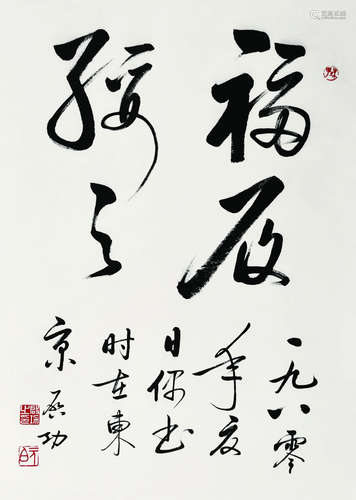 福履
綏之
一九八零
年夏
日偶书
时在東
京 启功